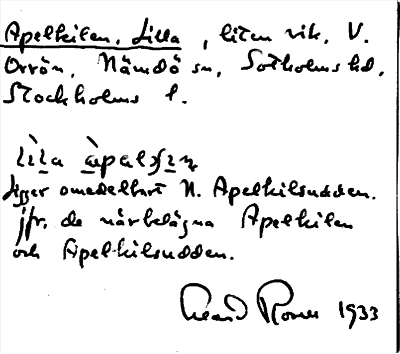 Apelkilen, Lilla, liten vik, V.
Orrön, Nämdö sn, Sotholms hd,
Stockholms l.
lìla
ligger omedelbart N. Apelkilsudden.
jfr. de närbelägna Apelkilen
och Apelkilsudden.
1933